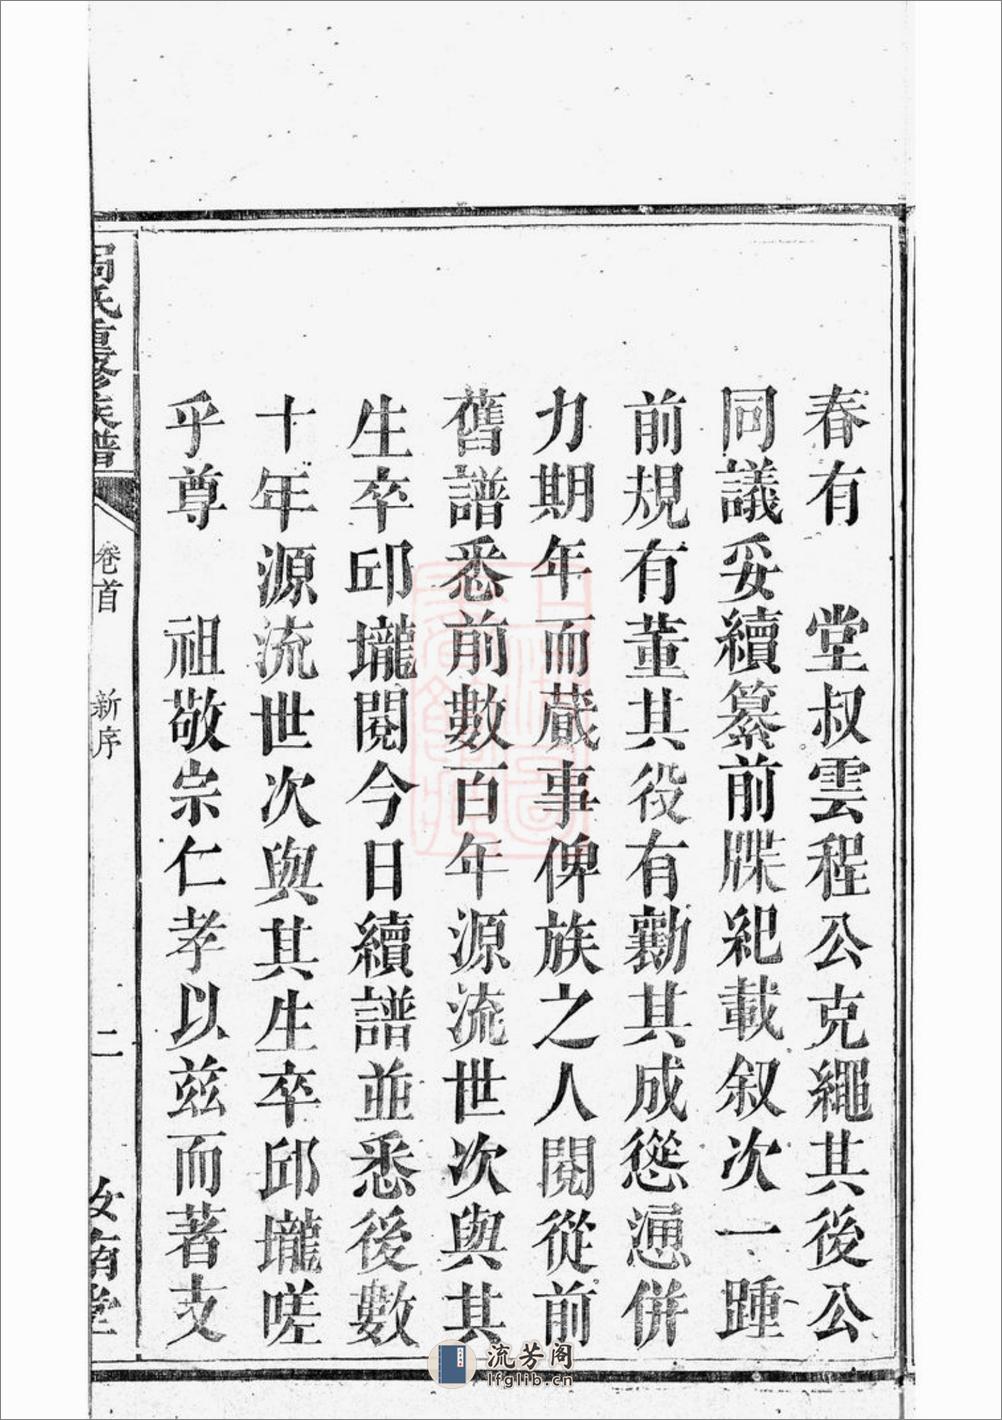 春有　堂叔雲程公克繩其後公
同議妥續纂前牒紀載叙次一踵
前規有董其役有勷其成慫慂併
力期年而蕆事俾族之人閱從前
舊譜悉前數百年源流世次與其
生卒邱壠閱今日續譜並悉後數
十年源流世次與其生卒邱壠嗟
乎尊　祖敬宗仁孝以兹而著支
周氏重修族譜
卷首
新序
二
汝南堂
流芳阁
lfglib.cn